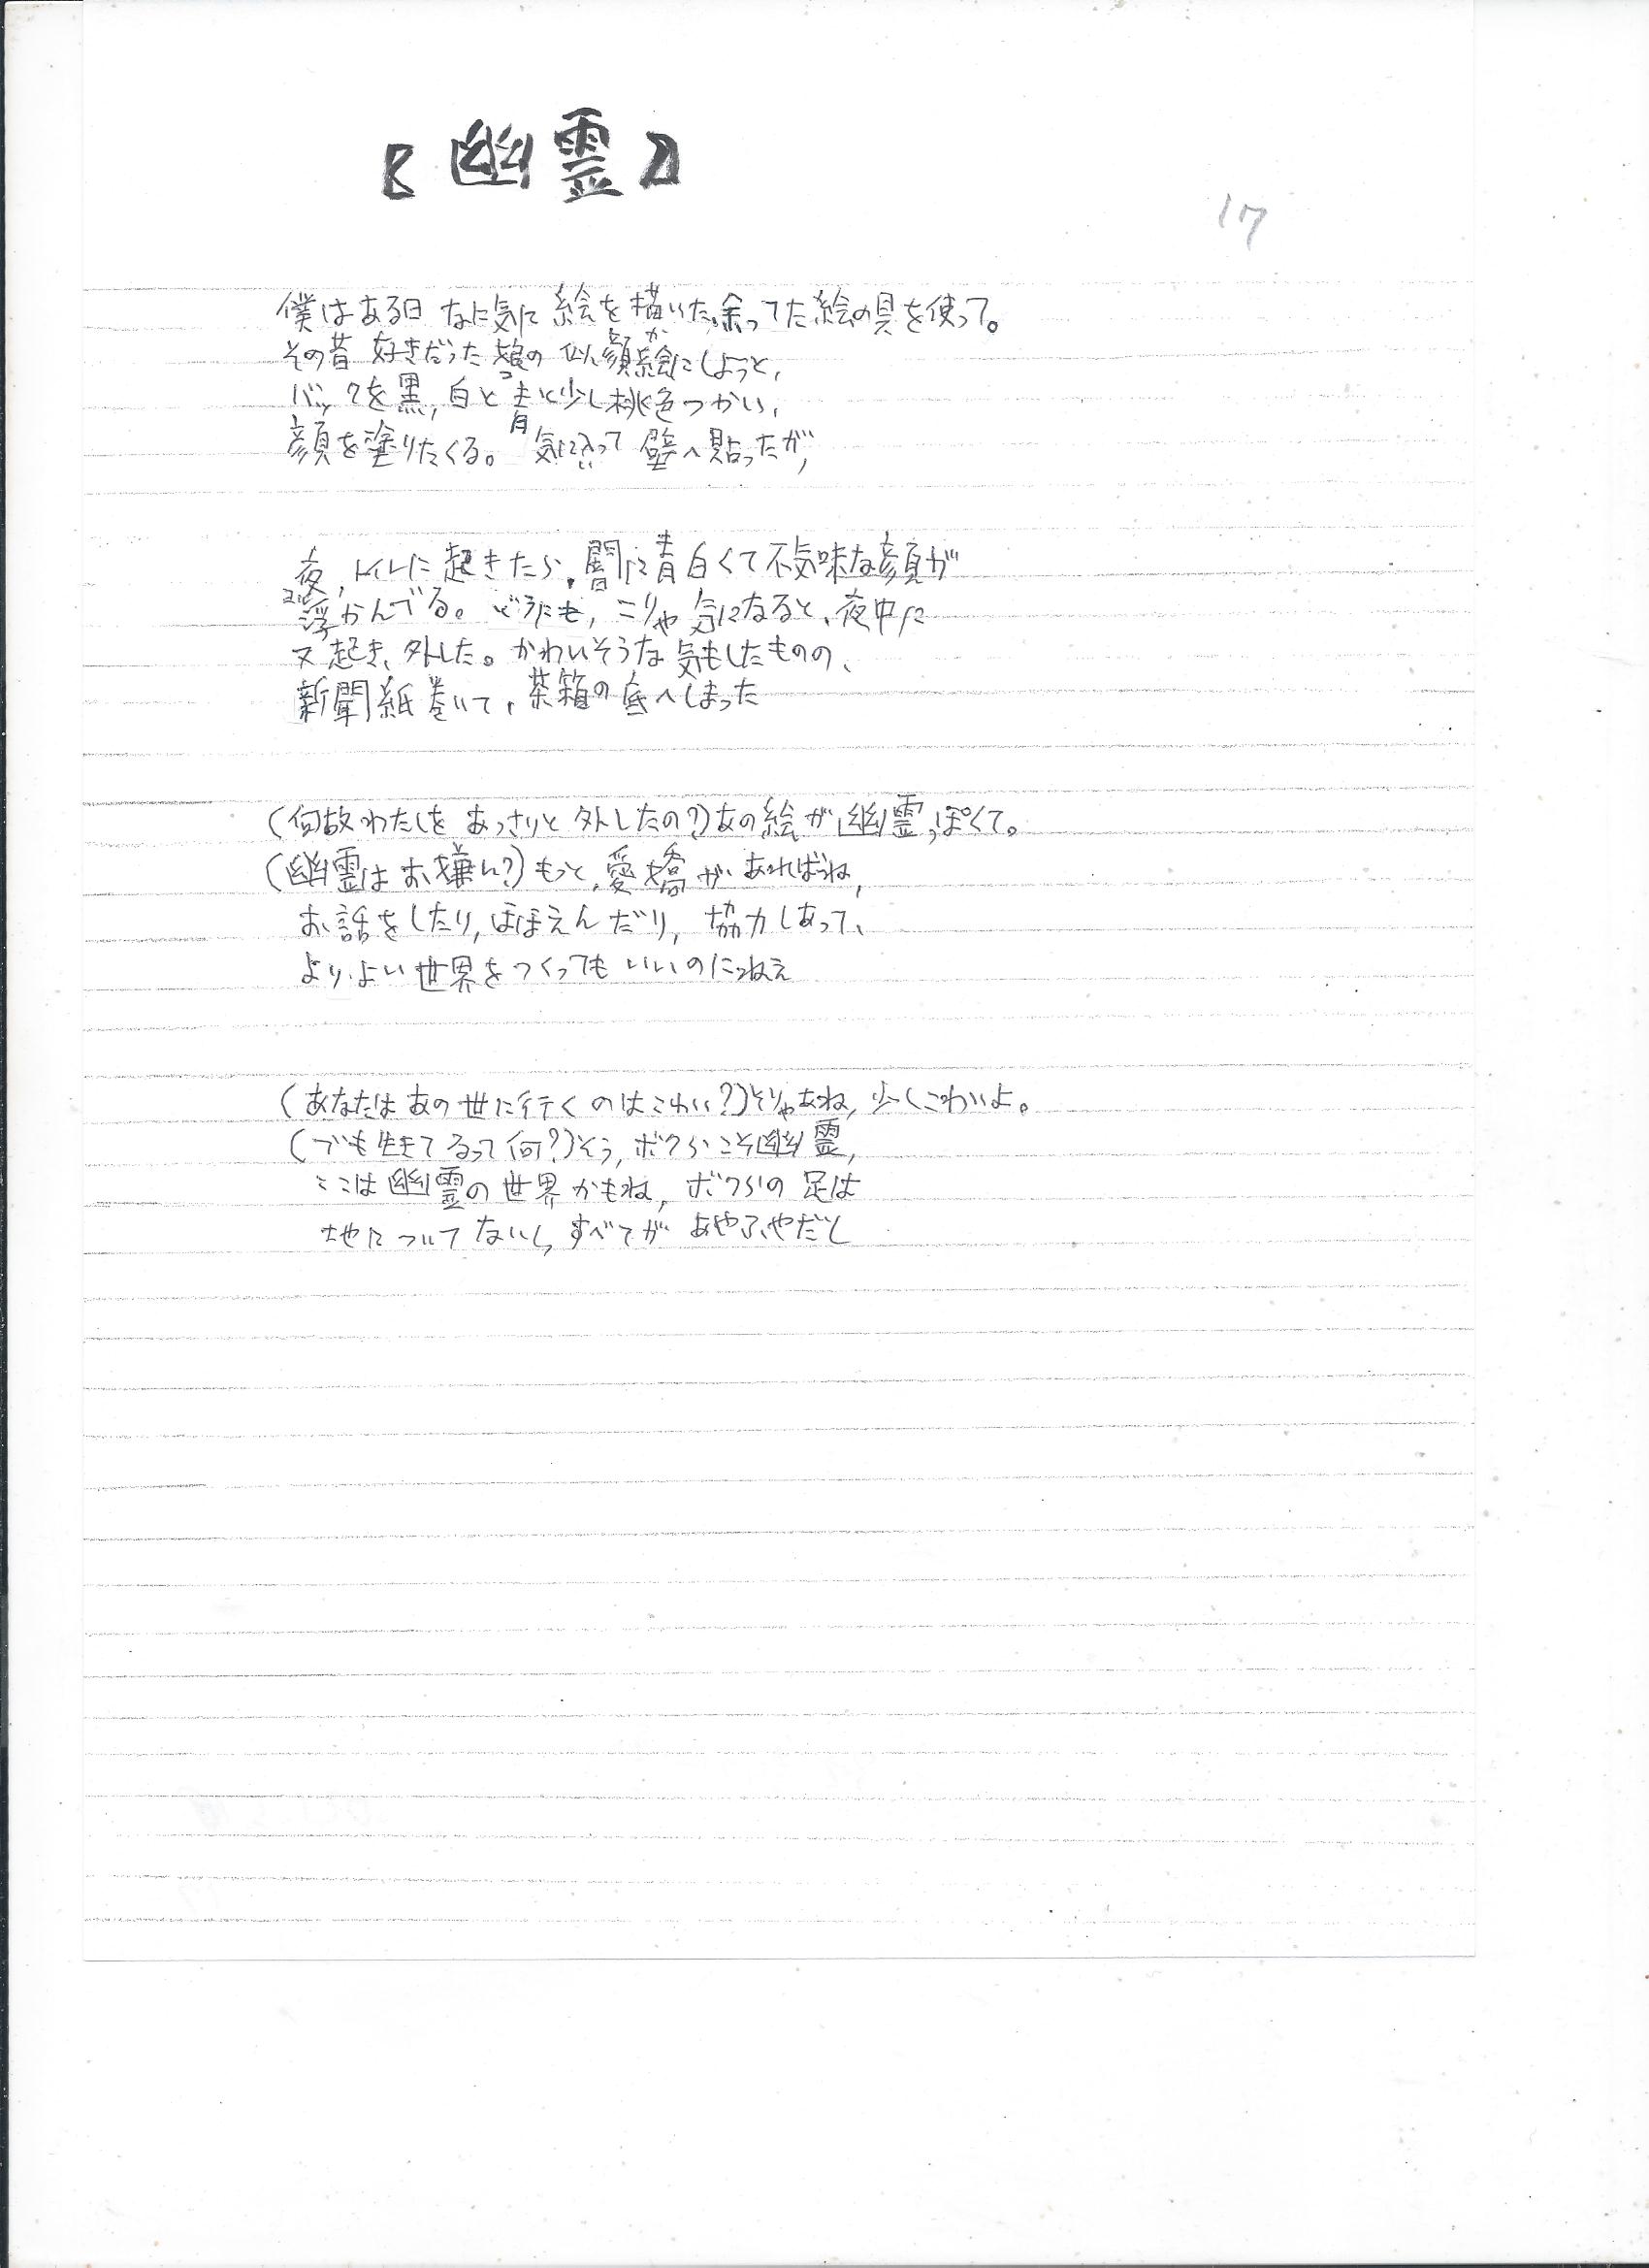 【幽霊】
17
僕はある日 なに気に 絵を描いた、余ってた絵の具を使って。
その昔 好きだった娘の 似顔絵にしようと、
バックを黒, 白と青と少し桃色つかい、
顔を塗りたくる。気に入って 壁へ貼ったが,
夜, トイレに起きたら, 闇に青白くて不気味な顔が
浮かんでる。どうにも, こりゃ気になると、夜中に
又起き、外した。かわいそうな気もしたものの、
新聞紙巻いて, 茶箱の底へしまった
(何故わたしを あっさりと 外したの?)あの絵が幽霊っぽくて。
(幽霊はお嫌い?)もっと, 愛嬌があればね,
お話をしたり, ほほえんだり, 協力しあって、
よりよい世界をつくってもいいのにねえ
(あなたは あの世に行くのはこわい?)そりゃあね, 少しこわいよ。
(でも生きてるって何?)そう, ボクらこそ幽霊,
ここは幽霊の世界かもね, ボクらの足は
地についてないし, すべてが あやふやだし